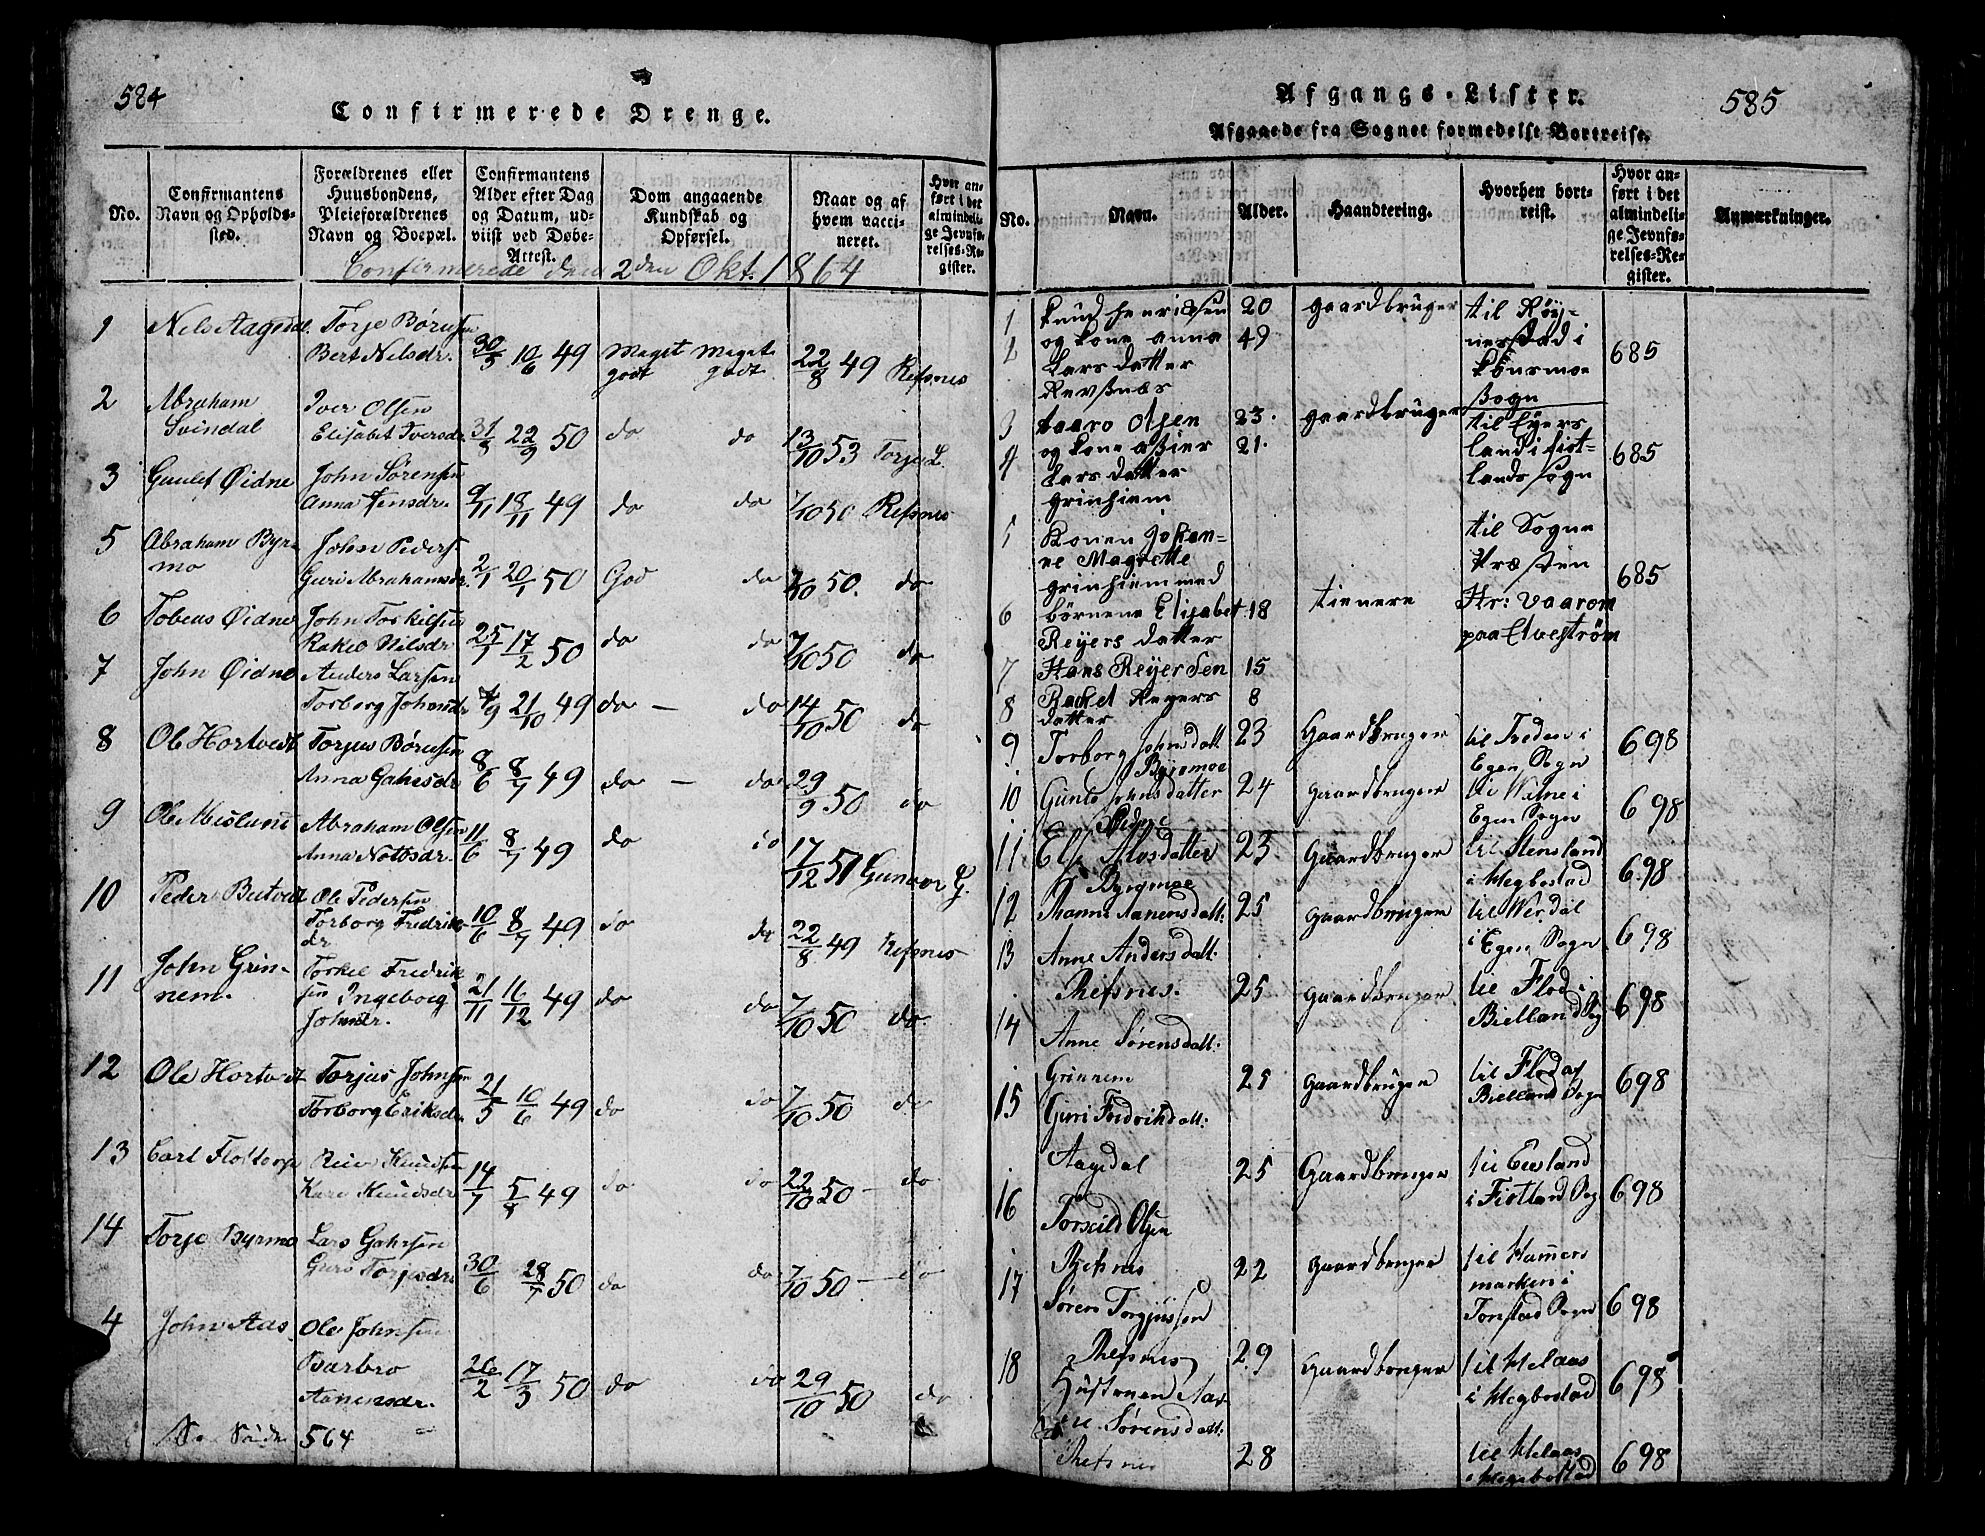 584
Confirmerede Drenge.
No.
Confirmantens Navn og Opholdssted.
Forældrenes eller Huusbondens, Pleieforældrenes Navn og Boepæl.
Confirmantens Alder efter Dag og Datum, udviist ved Døbe-Attest.
Dom angaaende Kundskab og Opførsel.
Naar og af hvem vaccineret.
Hvor anført i det almindelige Jevnførelses-Register.
Confirmerede den 2den Okt. 1864
1 Nels Aagedal. Torje Børusen
Bert Nelsdr. 30/5 10/6 49 Meget godt Meget godt 22/8 49 Refsnes
2 Abraham Iver Olsen
Svindal Elisabet Iversdr. 31/8 22/9 50 do do 13/10 53 Torje L.
3 Gaulet Øidne John Sørensen
Anna Jensdr. 9/11 18/11 49 do do 7/10 50 Refsnes
5 Abraham Byr- John Peders
mo Guri Abrahamsdr. 2/1 20/1 50 God do 7/10 50. do
6 Tobeas Øidne John Torkilsen
Rakel Nilsdr 25/1 17/2 50 do do 7/10 50 do
7 John Øidne Anders Larsen
Torborg Johnsdr 4/9 21/10 49 do - do 14/10 50 do
8 Ole Hortvedt Torjus Børusen
Anna Gahrsdr 8/6 8/7 49 do - do 29/9 50 do
9 Ole Mislund Abraham Olsen
Anna Nottosdr. 11/6 8/7 49 do do 17/12 51 Gunvor G.
10 Peder Butvedt Ole Pedersen
Torborg Fredriks
dr 10/6 8/7 49 do do 22/8 49 Refsnes
11 John Grin- Torkel Fredrik
nem. sen Ingeborg
Johnsdr. 21/11 16/12 49 do do 7/10 50 do
12 Ole Hortvedt Torjus Johnsen
Torborg Eriksdr 21/5 10/6 49 do do 7/10 50 do
13 Carl Flottorp Reier Knudsen
Kari Knudsdr 14/7 5/8 49 do do 22/10 50 - do
14 Torje Byrmo Lars Gahrsen
Guro Torjesdr 30/6 28/7 50 do do 7/10 50 - do
4 John Aas Ole Johnsen
Barbro
Aanensdr. 26/2 17/3 50 do do 29/10 50 do
564
585
Afgangs-Lister.
Afgaaede fra Sognet formedelst Bortreise.
No.
Navn.
Alder.
Haandtering.
Hvorhen bortreist.
Hvor anført i det almindelige Jevnførelses-Register.
Anmærkninger.
1 Knud Henriksen 20 gaardbruger til Røy-
2 og kone Anna 49 nestad i
Lars datter 685
Revsnæs Sogn
3 Aaro Olsen 23. gaardbruger til Eyers
4 og kone Asier 21. land i Fiot-
Lars datter lands Sogn 685
grinhiem
5 Konen Johan- til Sogne
ne Magrette Præsten 685
grinhiem med
6 børnene Elisabet 18 tienere Hr: Vaarom
Reyers datter paa Elvestrøm
7 Hans Reyersen 15
8 Rackel Reyers 8
datter
9 Torborg Johnsdatt 23 Gaardbruger til Freden i
Byremoe Egen Sogn 698
10 Gunto Johnsdatter 24 gaardbruger til Vatne i
Øidne Egen Sogn 698
11 Else Alvsdatter 23 Gaardbruger til Stensland
Byremoe i Hegbostad 698
12 Thanne Aanensdatt: 25 gaardbruger til Verdal
i Egen Sogn 698
13 Anne Andersdatt:
Refsnes. 25 gaardbruger til Flod i
Bielland Sog 698
14 Anne Sørensdatt:
Grinnem 25 gaardbruger til Flod af
Bielland Sogn 698
15 Guri Fredrikdatt:
Aagedal 25 Gaardbruger til Eeland
i Fiotland Sog 698
16 Torkild Olsen
Refsnes 22 gaardbruger til Hamers
17 Søren Torgjussen marken i
Tonstad Sogn 698
Refsnes 29 gaardbruger til Helaas
18 Hustruen Aas- i Hegbostad 698
Sørensdatt:
Refsnes 28 til Helaas
i Hegebostad 698